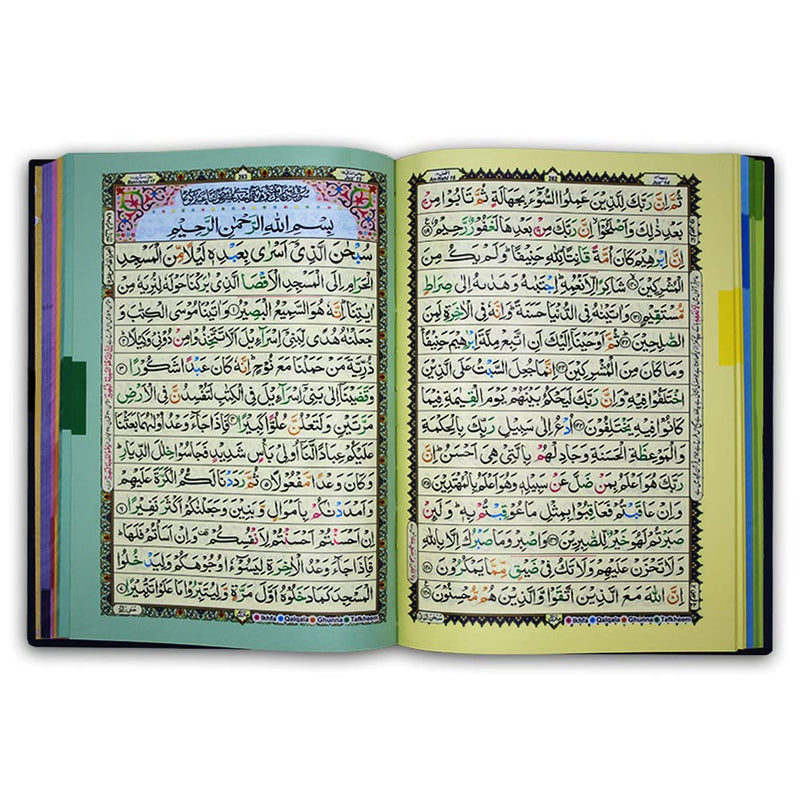 An-Nahl 16
282
Juz' 14
ثُمَّ اِنَّ رَبَّكَ لِلَّذِيْنَ عَمِلُوا السُّوْٓءَ بِجَهَالَةٍ ثُمَّ تَابُوْا مِنْۢ
بَعْدِ ذٰلِكَ وَاَصْلَحُوْٓا اِنَّ رَبَّكَ مِنْۢ بَعْدِهَا لَغَفُوْرٌ رَّحِيْمٌ
اِنَّ اِبْرٰهِيْمَ كَانَ اُمَّةً قَانِتًا لِّلّٰهِ حَنِيْفًا وَلَمْ يَكُ مِنَ
الْمُشْرِكِيْنَ شَاكِرًا لِّاَنْعُمِهٖ اِجْتَبٰىهُ وَهَدٰىهُ اِلٰى صِرَاطٍ
مُّسْتَقِيْمٍ وَاٰتَيْنٰهُ فِي الدُّنْيَا حَسَنَةً وَاِنَّهٗ فِي الْاٰخِرَةِ لَمِنَ
الصّٰلِحِيْنَ ثُمَّ اَوْحَيْنَآ اِلَيْكَ اَنِ اتَّبِعْ مِلَّةَ اِبْرٰهِيْمَ حَنِيْفًا
وَمَا كَانَ مِنَ الْمُشْرِكِيْنَ اِنَّمَا جُعِلَ السَّبْتُ عَلَى الَّذِيْنَ
اخْتَلَفُوْا فِيْهِ وَاِنَّ رَبَّكَ لَيَحْكُمُ بَيْنَهُمْ يَوْمَ الْقِيٰمَةِ فِيْمَا
كَانُوْا فِيْهِ يَخْتَلِفُوْنَ اُدْعُ اِلٰى سَبِيْلِ رَبِّكَ بِالْحِكْمَةِ
وَالْمَوْعِظَةِ الْحَسَنَةِ وَجَادِلْهُمْ بِالَّتِيْ هِيَ اَحْسَنُ اِنَّ
رَبَّكَ هُوَ اَعْلَمُ بِمَنْ ضَلَّ عَنْ سَبِيْلِهٖ وَهُوَ اَعْلَمُ بِالْمُهْتَدِيْنَ
وَاِنْ عَاقَبْتُمْ فَعَاقِبُوْا بِمِثْلِ مَا عُوْقِبْتُمْ بِهٖ وَلَئِنْ
صَبَرْتُمْ لَهُوَ خَيْرٌ لِّلصّٰبِرِيْنَ وَاصْبِرْ وَمَا صَبْرُكَ اِلَّا بِاللّٰهِ
وَلَا تَحْزَنْ عَلَيْهِمْ وَلَا تَكُ فِيْ ضَيْقٍ مِّمَّا يَمْكُرُوْنَ
اِنَّ اللّٰهَ مَعَ الَّذِيْنَ اتَّقَوْا وَّالَّذِيْنَ هُمْ مُّحْسِنُوْنَ
Ikhfa Qalqala Ghunna Tafkheem
283
بِسْمِ اللّٰهِ الرَّحْمٰنِ الرَّحِيْمِ
سُبْحٰنَ الَّذِيْٓ اَسْرٰى بِعَبْدِهٖ لَيْلًا مِّنَ الْمَسْجِدِ
الْحَرَامِ اِلَى الْمَسْجِدِ الْاَقْصَا الَّذِيْ بٰرَكْنَا حَوْلَهٗ لِنُرِيَهٗ مِنْ
اٰيٰتِنَا اِنَّهٗ هُوَ السَّمِيْعُ الْبَصِيْرُ وَاٰتَيْنَا مُوْسَى الْكِتٰبَ وَ
جَعَلْنٰهُ هُدًى لِّبَنِيْٓ اِسْرَآءِيْلَ اَلَّا تَتَّخِذُوْا مِنْ دُوْنِيْ وَكِيْلًا
ذُرِّيَّةَ مَنْ حَمَلْنَا مَعَ نُوْحٍ اِنَّهٗ كَانَ عَبْدًا شَكُوْرًا
وَقَضَيْنَآ اِلٰى بَنِيْٓ اِسْرَآءِيْلَ فِي الْكِتٰبِ لَتُفْسِدُنَّ فِي الْاَرْضِ
مَرَّتَيْنِ وَلَتَعْلُنَّ عُلُوًّا كَبِيْرًا فَاِذَا جَآءَ وَعْدُ اُوْلٰىهُمَا بَعَثْنَا
عَلَيْكُمْ عِبَادًا لَّنَآ اُولِيْ بَاْسٍ شَدِيْدٍ فَجَاسُوْا خِلٰلَ الدِّيَارِ
وَكَانَ وَعْدًا مَّفْعُوْلًا ثُمَّ رَدَدْنَا لَكُمُ الْكَرَّةَ عَلَيْهِمْ
وَاَمْدَدْنٰكُمْ بِاَمْوَالٍ وَّبَنِيْنَ وَجَعَلْنٰكُمْ اَكْثَرَ نَفِيْرًا
اِنْ اَحْسَنْتُمْ اَحْسَنْتُمْ لِاَنْفُسِكُمْ وَاِنْ اَسَاْتُمْ فَلَهَا
فَاِذَا جَآءَ وَعْدُ الْاٰخِرَةِ لِيَسُوْٓءٗا وُجُوْهَكُمْ وَلِيَدْخُلُوا
الْمَسْجِدَ كَمَا دَخَلُوْهُ اَوَّلَ مَرَّةٍ وَّلِيُتَبِّرُوْا مَا عَلَوْا تَتْبِيْرًا
Ikhfa Qalqala Ghunna Tafkheem